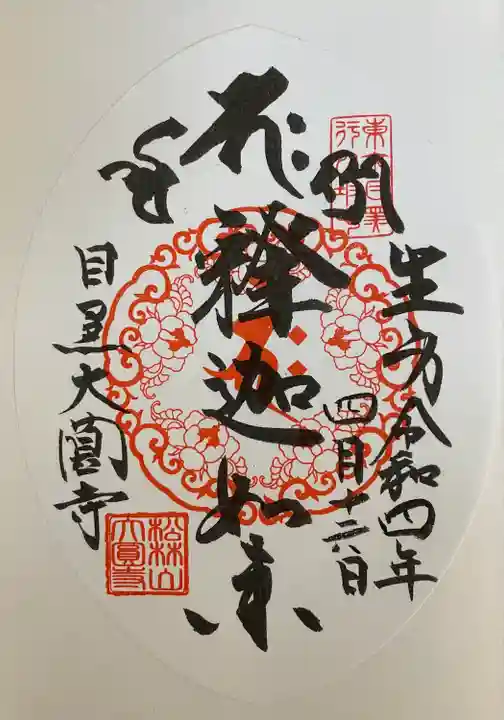 東京目黒
行人坂
生身
令和四年
四月十 日
釋迦如来
目黒大圓寺
松林山
大圓寺